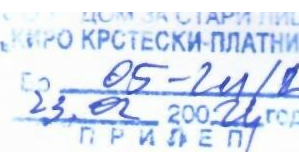 ДОМ ЗА СТАРИ ЛИЦ
„КИРО КРСТЕСКИ-ПЛАТНИ
Бр. 05-24/
23.02 2002 год
ПРИЛЕП